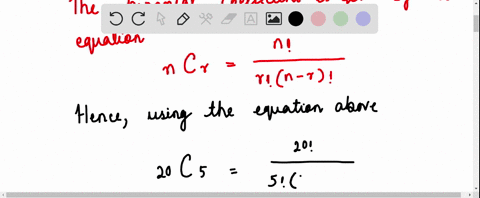 The
equation
nCr = n! / r!(n-r)!
Hence, using the equation above
20C5 = 20! / 5!(